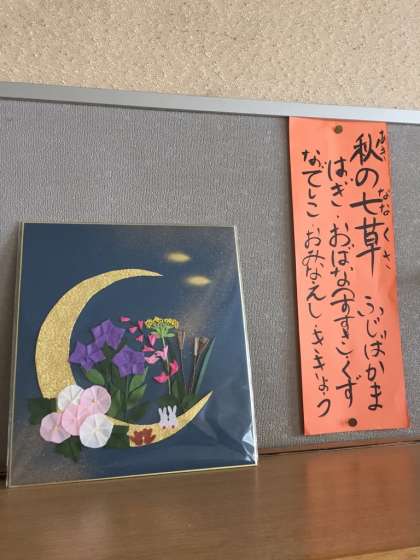 秋の七草
あき ななくさ
はぎ・おばな(すすき)・くず
なでしこ おみなえし・ききょう
ふじばかま